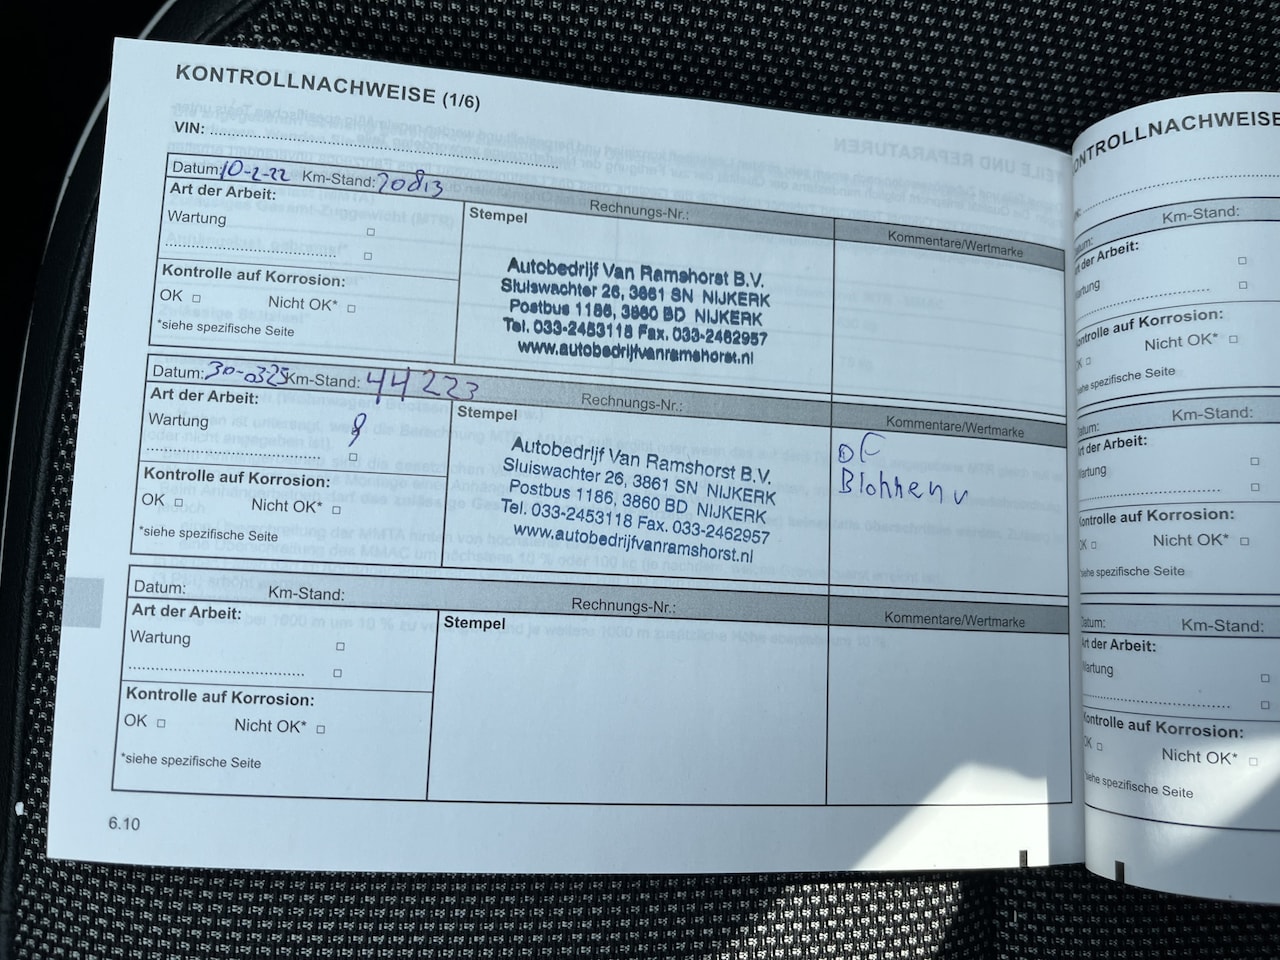 KONTROLLNACHWEISE (1/6)
VIN:
Datum: 10-2-22 Km-Stand: 20813
Rechnungs-Nr.:
Art der Arbeit:
Wartung
Kontrolle auf Korrosion:
OK Nicht OK*
*siehe spezifische Seite
Stempel
Autobedrijf Van Ramshorst B.V.
Sluiswachter 26, 3861 SN NIJKERK
Postbus 1186, 3860 BD NIJKERK
Tel. 033-2453118 Fax. 033-2462957
www.autobedrijfvanramshorst.nl
Kommentare/Wertmarke
Datum: 30-0325 Km-Stand: 44223
Rechnungs-Nr.:
Art der Arbeit:
Wartung
Kontrolle auf Korrosion:
OK Nicht OK*
*siehe spezifische Seite
Stempel
Autobedrijf Van Ramshorst B.V.
Sluiswachter 26, 3861 SN NIJKERK
Postbus 1186, 3860 BD NIJKERK
Tel. 033-2453118 Fax. 033-2462957
www.autobedrijfvanramshorst.nl
Kommentare/Wertmarke
Datum: Km-Stand:
Rechnungs-Nr.:
Art der Arbeit:
Wartung
Kontrolle auf Korrosion:
OK Nicht OK*
*siehe spezifische Seite
Stempel
Kommentare/Wertmarke
6.10
ONTROLLNACHWEISE
Km-Stand:
der Arbeit:
Wartung
Kontrolle auf Korrosion:
OK Nicht OK*
*siehe spezifische Seite
Datum: Km-Stand:
Art der Arbeit:
Wartung
Kontrolle auf Korrosion:
OK Nicht OK*
*siehe spezifische Seite
Datum: Km-Stand:
Art der Arbeit:
Wartung
Kontrolle auf Korrosion:
OK Nicht OK*
*siehe spezifische Seite